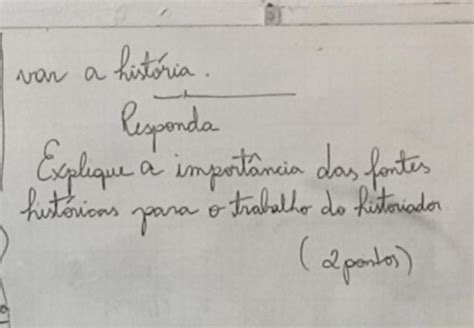 var a história.
Responda
Explique a importância das fontes
históricas para o trabalho do historiador
(2 pontos)